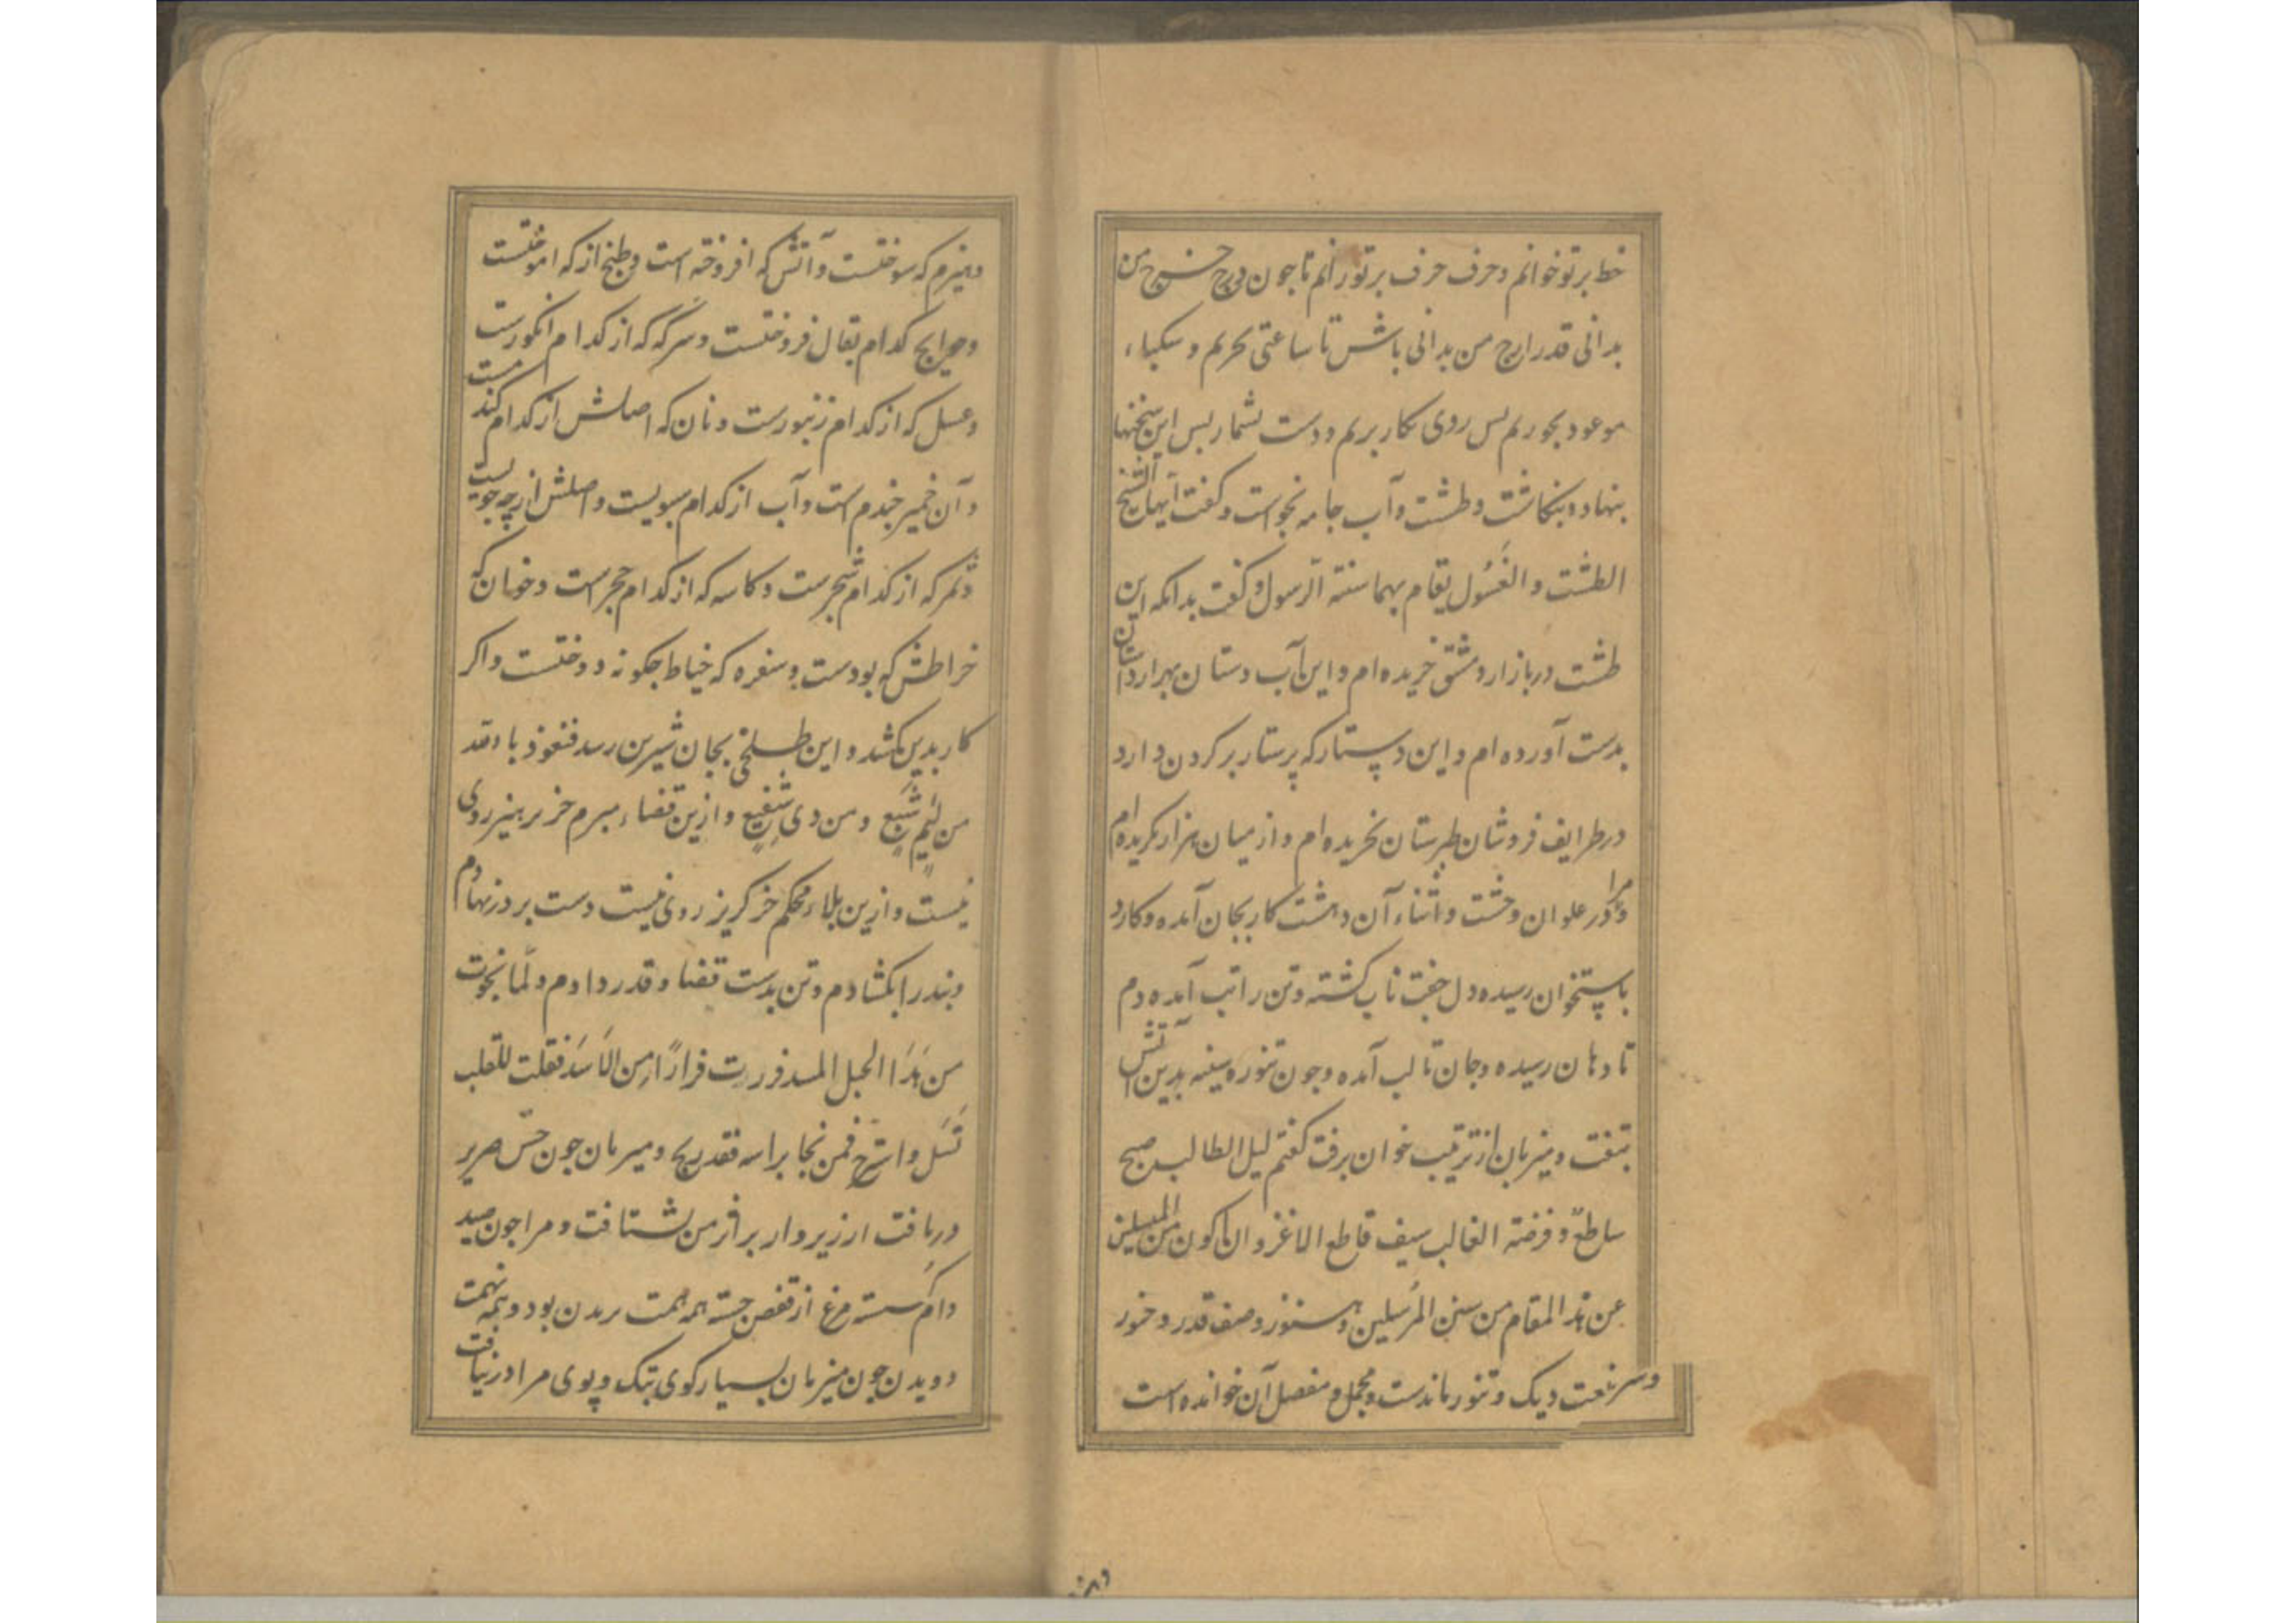 خط بر تو خوانم و حرف حرف بر تو رانم تا جون درج خرج من
بدانی قدر ارج من بدانی باش تا ساعتی بحریم و سکباء
موعود بخوریم پس روی بکار بریم و دست بشمار پس این سخنها
بنهاد و بنکاشت و طشت و آب جامه بخواست و کفت ایها الشیخ
الطشت و الغسول یقام بهما سنة الرسول و کفت بدانکه این
طشت در بازار دمشق خریده ام و این آب دستان بهزار داستان
بدست آورده ام و این دستار که پرستار بر کردن دارد
در طرایف فروشان طبرستان بخریده ام و از میان هزار بکزیده ام
و مرا در علوان وحشت و اثناء آن دهشت کار بجان آمده و کارد
باستخوان رسیده دل جفت تاب کشته و تن را تب آمده دم
تا دهان رسیده و جان تا لب آمده و جون تنوره سینه بدین آتش
بتفت و میزبان از ترتیب خوان برفت کفتم لیل الطالب صبح
ساطع و فرصة الغالب سیف قاطع الاغرو ان اکون من المنسلین
عن هذا المقام من سنن المرسلین و هنوز وصف قدر و خور
و سر نعت دیک و تنور ماندست و مجمل و مفصل آن خوانده است
وهیزم که سوختست و آتش که افروخته است و طبخ از که اموختست
و حوایج کدام بقال فروختست و سرکه که از کدام انکورست
و عسل که از کدام زنبورست و نان که اصلش از کدام کندمست
و آن خمیر جندم است و آب از کدام سبویست و اصلش از چه جویست
و ثمر که از کدام شجرست و کاسه که از کدام حجر است و خوان که
خراطش که بودست و سفره که خیاط جکونه دوختست و اکر
کار بدین کشد و این طلخی بجان شیرین رسد فنعوذ بالله
من لئیم شبع و من دی شفیع و ازین قضاء مبرم خز پرهیز روی
نیست و ازین بلاء محکم خز کریز روی نیست دست بر در نهادم
و بند را بکشادم و تن بدست قضا و قدر دادم و لما نجوت
من هذا الحبل المسد فررت فرارا من الاسد فقلت للقلب
تسل و استرح فمن نجا براسه فقد ربح و میزبان جون حس صریر
دریافت از زیر وار بر اثر من بشتافت و مرا جون صید
دام کسسته مرغ از قفص جسته همه همت پریدن بود و همه نهمت
دویدن جون میزبان بسیار کوی بتک و پوی مرا درنیافت